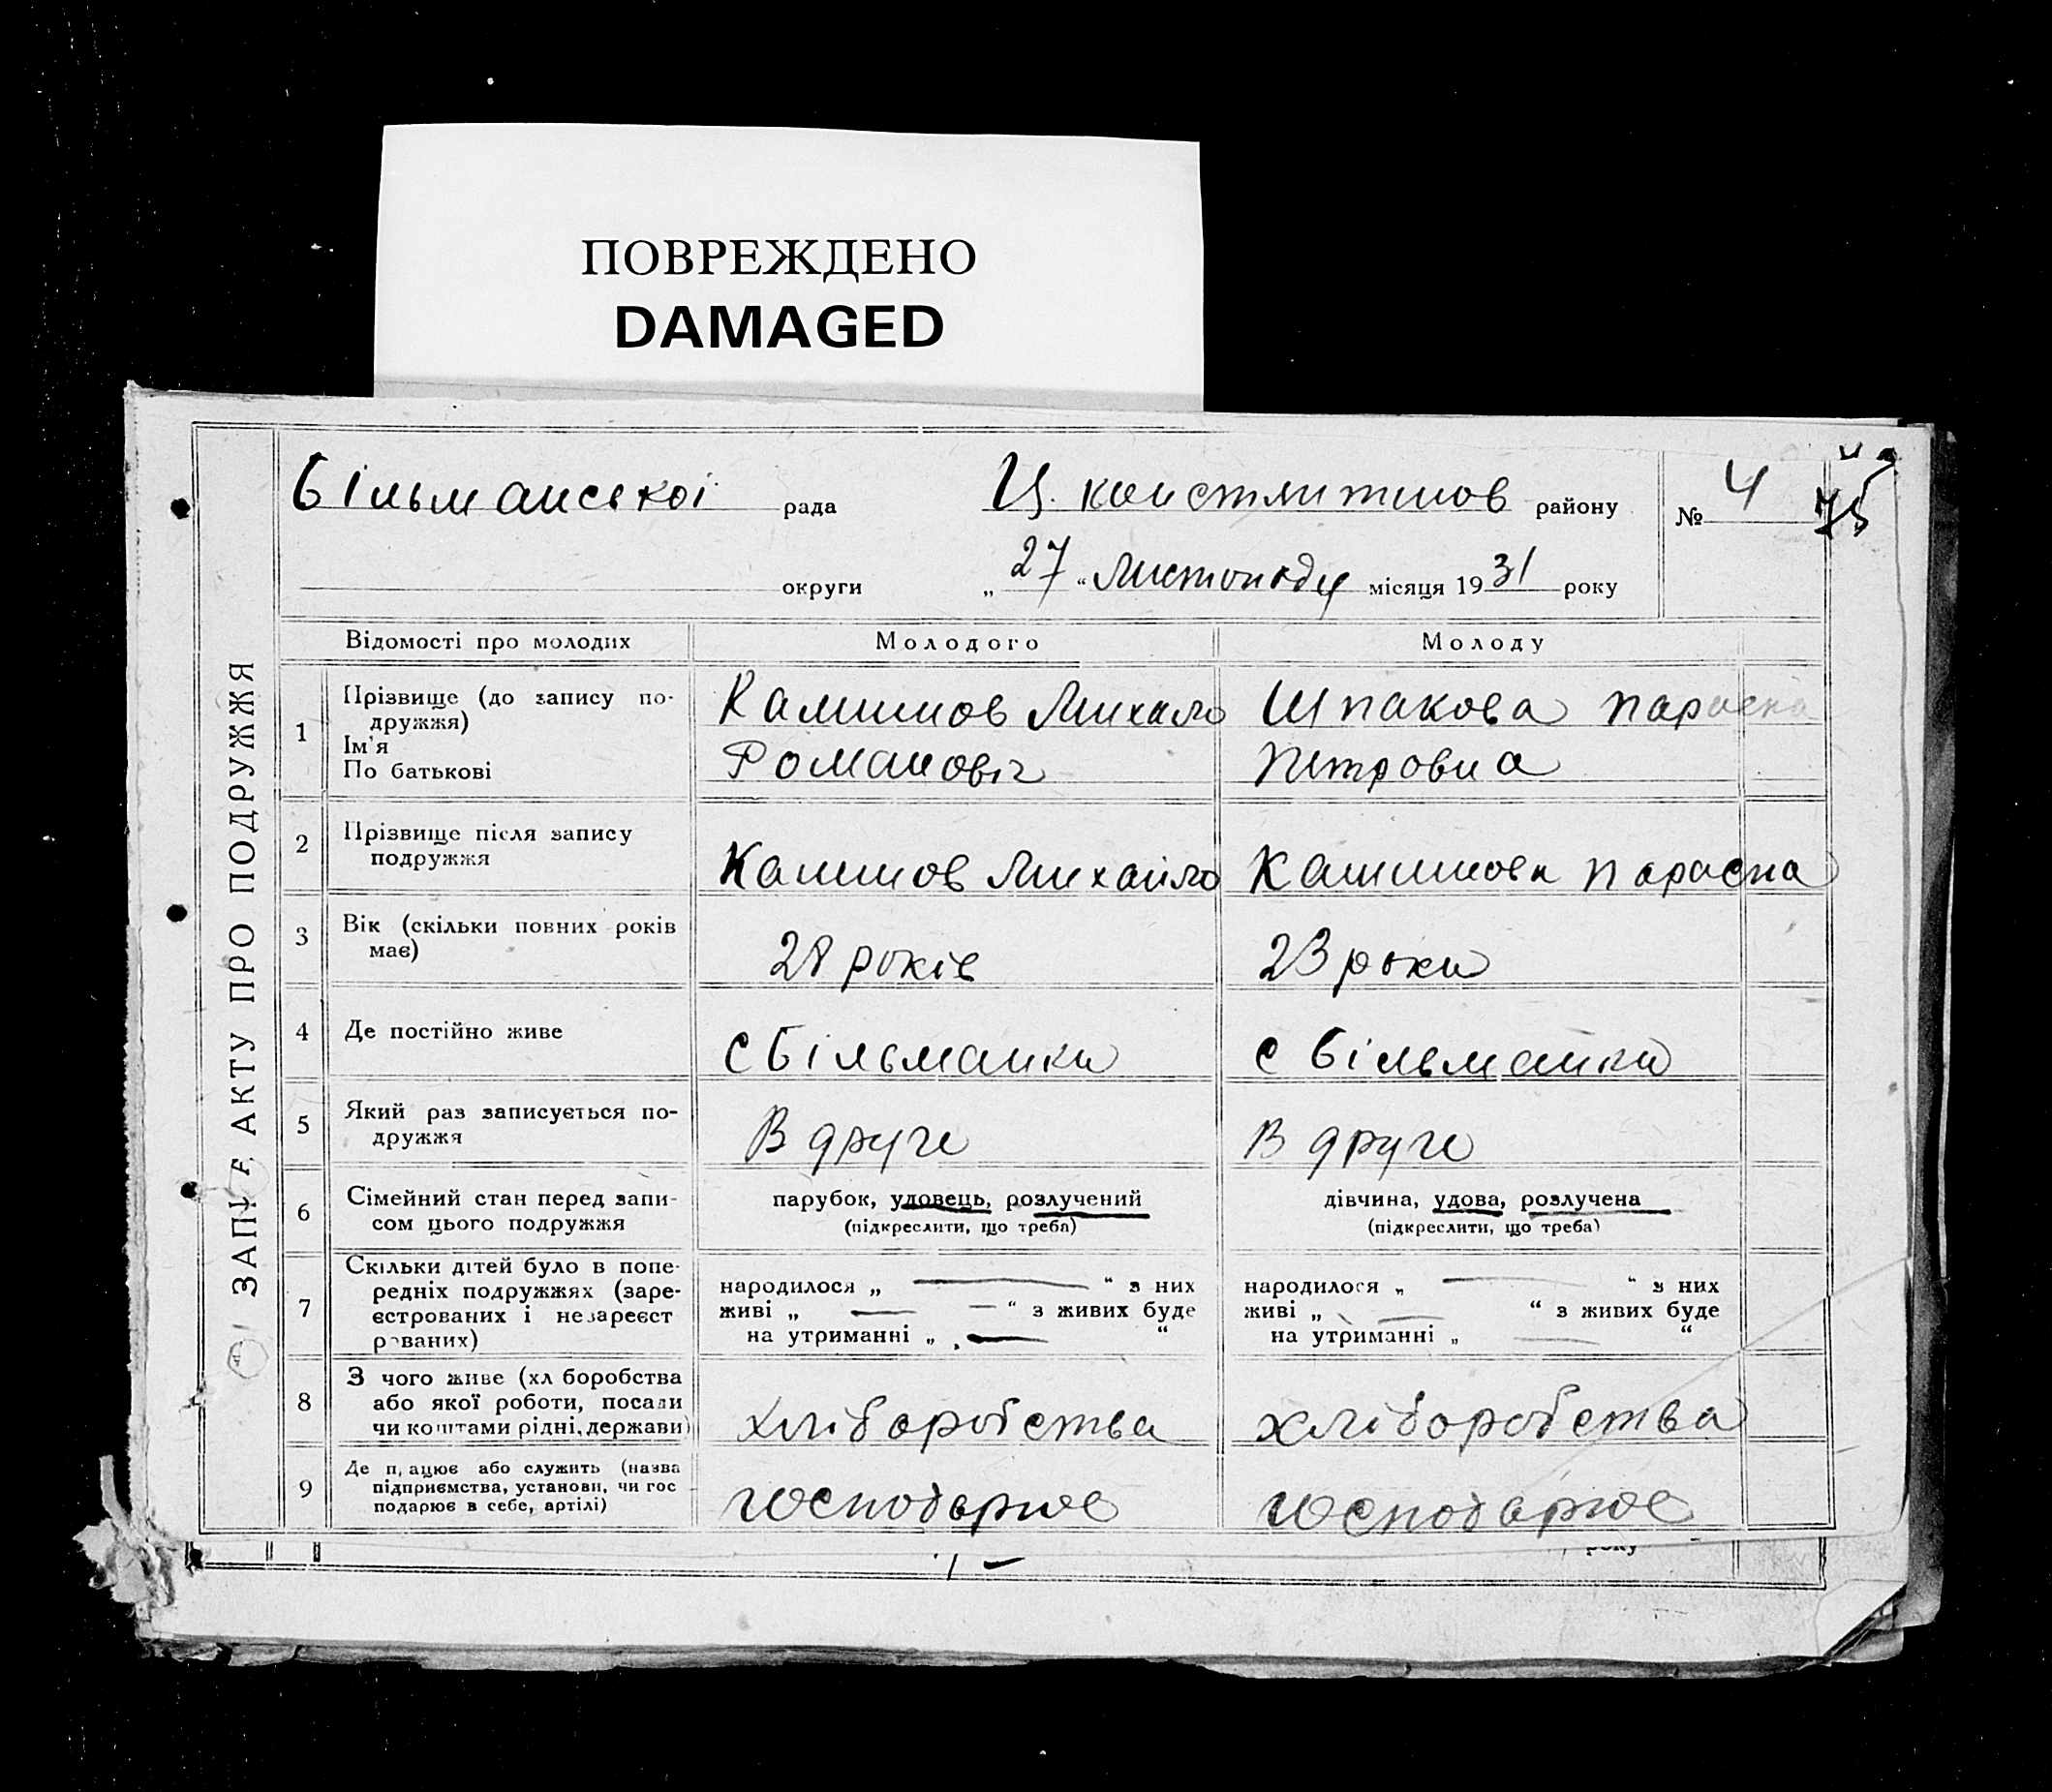 ПОВРЕЖДЕНО
DAMAGED
Більманської рада
Ц. констянтинов району
№ 4
75
округи
„ 27 “ Листопаду місяця 1931 року
ЗАПИС АКТУ ПРО ПОДРУЖЖЯ
Відомості про молодих
Молодого
Молоду
1
Прізвище (до запису по-
дружжя)
Ім'я
По батькові
Калинов Михало
Романовіч
Шпакова Параска
Петровна
2
Прізвище після запису
подружжя
Калинов Михайло
Калинова Параска
3
Вік (скільки повних років
має)
28 років
23 роки
4
Де постійно живе
с Більманки
с Більманки
5
Який раз записується по-
дружжя
В друге
В друге
6
Сімейний стан перед запи-
сом цього подружжя
парубок, удовець, розлучений
(підкреслити, що треба)
дівчина, удова, розлучена
(підкреслити, що треба)
7
Скільки дітей було в попе-
редніх подружжях (заре-
єстрованих і незареєст
рованих)
народилося „ — “ з них
живі „ — — “ з живих буде
на утриманні „ — “
народилося „ — “ з них
живі „ — “ з живих буде
на утриманні „ — “
8
З чого живе (хліборобства
або якої роботи, посади
чи коштами рідні, держави)
хліборобства
хліборобства
9
Де працює або служить (назва
підприємства, установи, чи гос
подарює в себе, артілі)
господарює
господарює
року